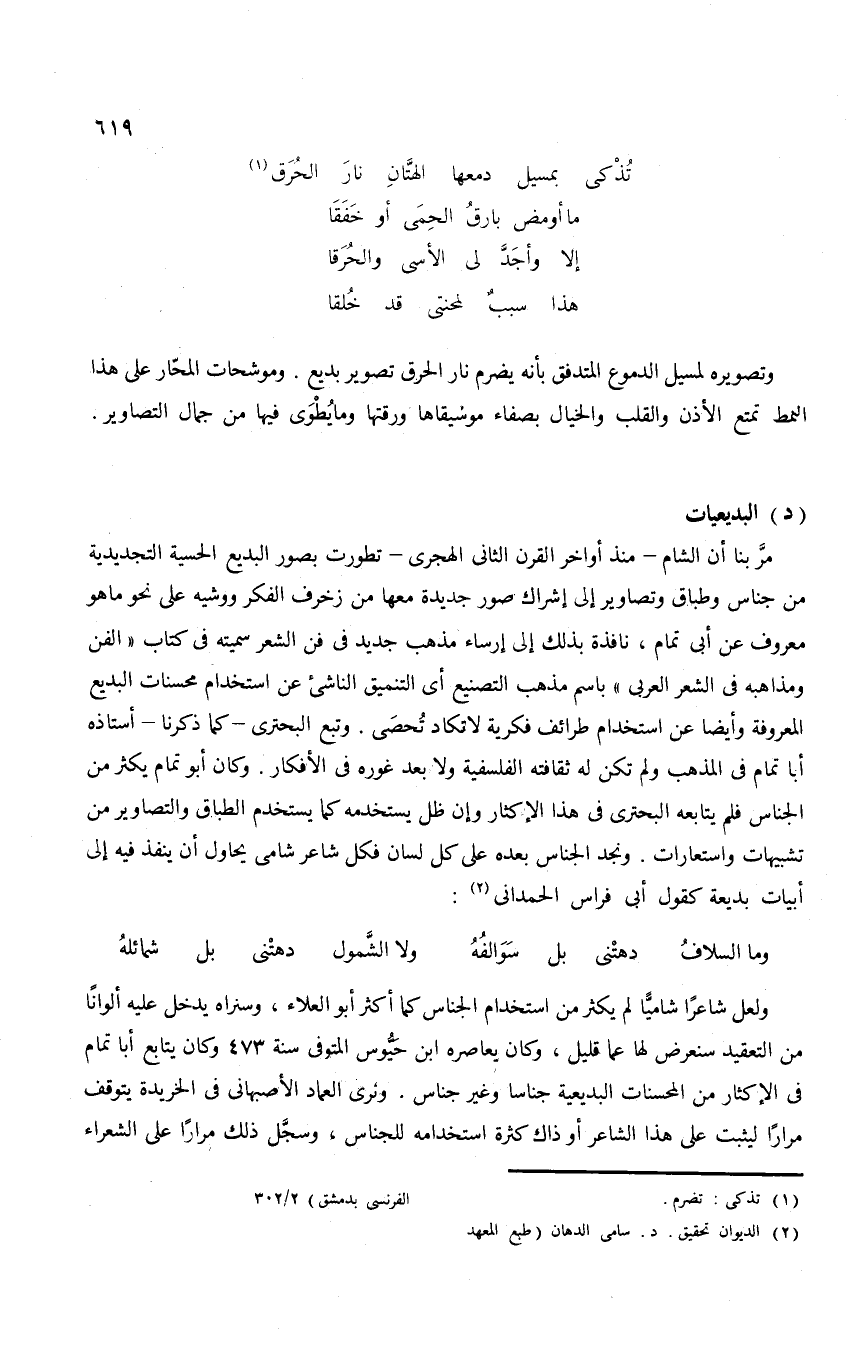 ٦١٩
تُذْكى بمسيل دمعها الهتَّانِ نارَ الحُرَق(١)
ما أومض بارقُ الحِمَى أو خَفَقَا
إلا وأجَدَّ لى الأسى والحُرَقا
هذا سببٌ لمحنتى قد خُلقا
وتصويره لمسيل الدموع المتدفق بأنه يضرم نار الحرق تصوير بديع . وموشحات المحّار على هذا
النمط تمتع الأذن والقلب والخيال بصفاء موسيقاها ورقتها ومايُطْوَى فيها من جمال التصاوير .
( د ) البديعيات
مرَّ بنا أن الشام – منذ أواخر القرن الثانى الهجرى – تطورت بصور البديع الحسية التجديدية
من جناس وطباق وتصاوير إلى إشراك صور جديدة معها من زخرف الفكر ووشيه على نحو ماهو
معروف عن أبى تمام ، نافذة بذلك إلى إرساء مذهب جديد فى فن الشعر سميته فى كتاب « الفن
ومذاهبه فى الشعر العربى » باسم مذهب التصنيع أى التنميق الناشئ عن استخدام محسنات البديع
المعروفة وأيضا عن استخدام طرائف فكرية لاتكاد تُحصَى . وتبع البحترى – كما ذكرنا – أستاذه
أبا تمام فى المذهب ولم تكن له ثقافته الفلسفية ولا بعد غوره فى الأفكار . وكان أبو تمام يكثر من
الجناس فلم يتابعه البحترى فى هذا الإكثار وإن ظل يستخدمه كما يستخدم الطباق والتصاوير من
تشبيهات واستعارات . ونجد الجناس بعده على كل لسان فكل شاعر شامى يحاول أن ينفذ فيه إلى
أبيات بديعة كقول أبى فراس الحمدانى(٢) :
وما السلافُ دهتْنى بل سَوَالفُهُ ولا الشَّمول دهتْنى بل شمائلهُ
ولعل شاعرًا شاميًّا لم يكثر من استخدام الجناس كما أكثر أبو العلاء ، وسنراه يدخل عليه ألوانًا
من التعقيد سنعرض لها عما قليل ، وكان يعاصره ابن حَيُّوس المتوفى سنة ٤٧٣ وكان يتابع أبا تمام
فى الإكثار من المحسنات البديعية جناسا وغير جناس . ونرى العماد الأصبهانى فى الخريدة يتوقف
مرارًا ليثبت على هذا الشاعر أو ذاك كثرة استخدامه للجناس ، وسجَّل ذلك مرارًا على الشعراء
(١) تذكى : تضرم .
(٢) الديوان تحقيق . د . سامى الدهان (طبع المعهد
الفرنسى بدمشق) ٣٠٢/٢